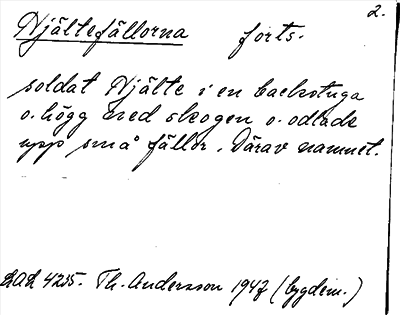 2.
Hjältefällorna forts.
soldat Hjälte i en backstuga
o. högg ned skogen o. odlade
upp små fällor. Därav namnet.
4235. Th. Andersson 1947 (bygdem.)